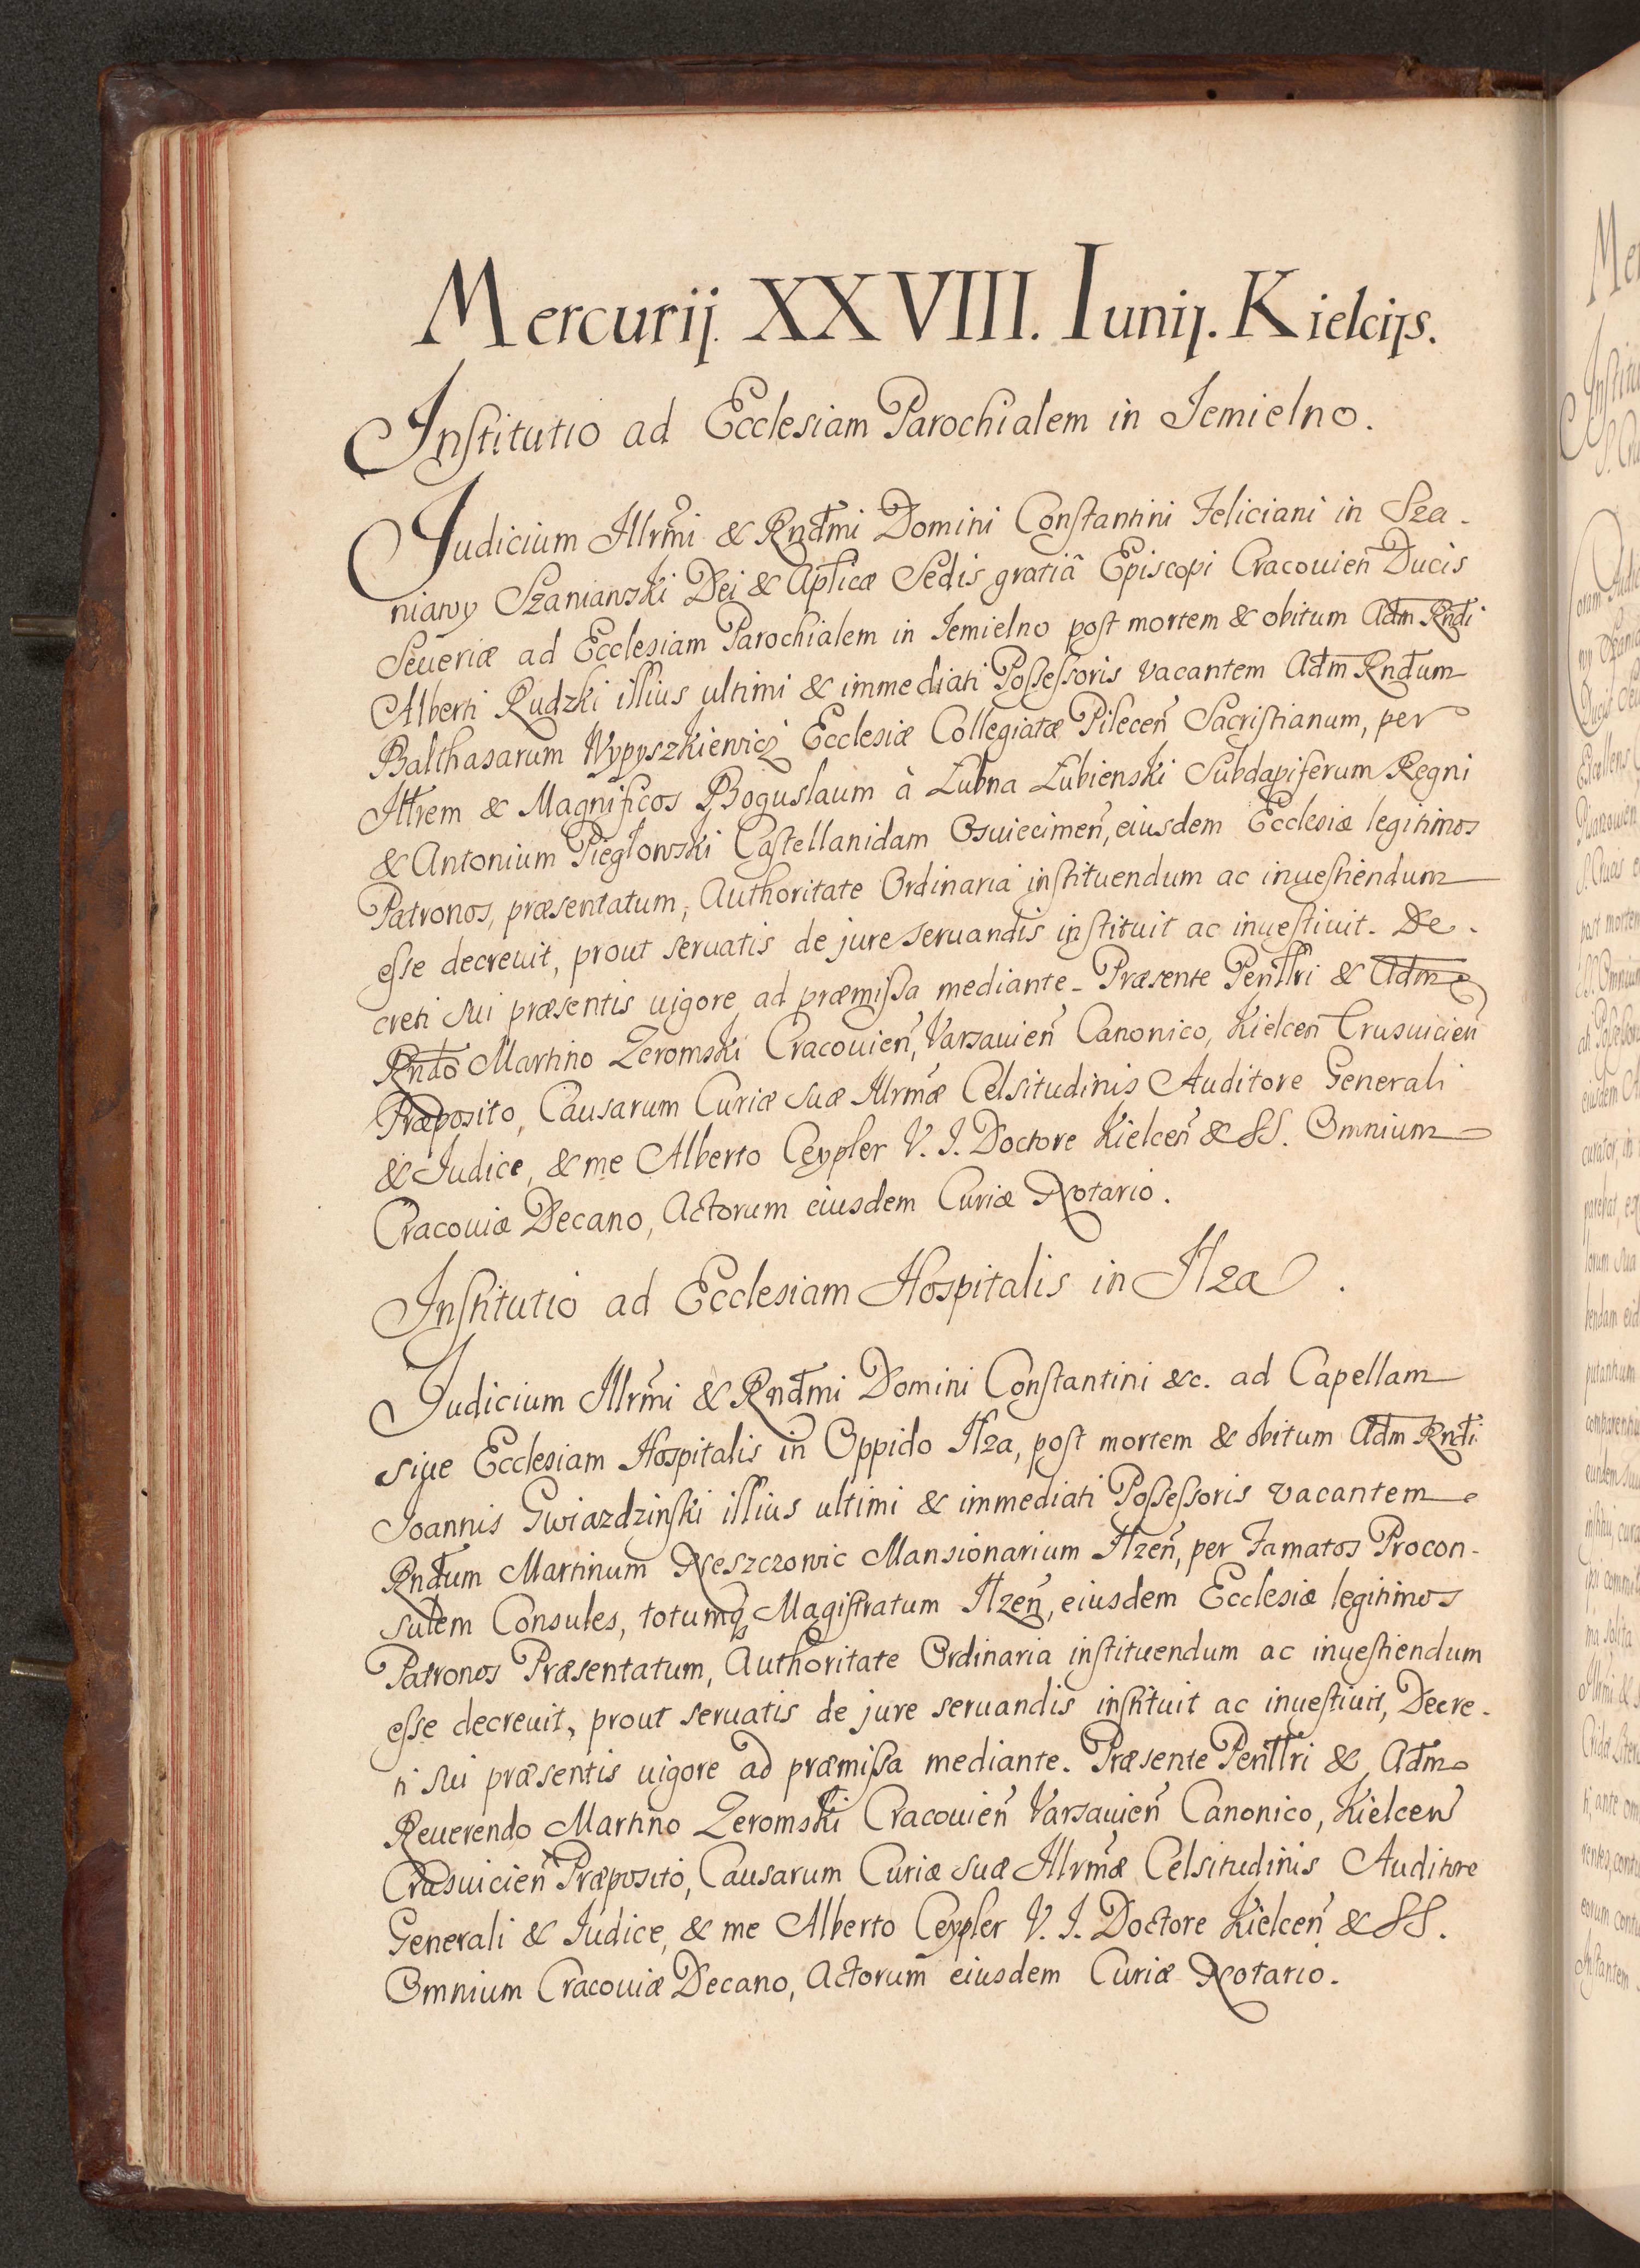 Mercurij. XXVIII. Iunij. Kielcijs.
Institutio ad Ecclesiam Parochialem in Iemielno.
Judicium Illrmi & Rndmi Domini Constantini Feliciani in Sza-
niawy Szaniawski Dei & Aplicæ Sedis gratiâ Episcopi Cracouien Ducis
Seueriæ ad Ecclesiam Parochialem in Iemielno post mortem & obitum Adm Rndi
Alberti Rudzki illius ultimi & immediati Possessoris vacantem Adm Rndum
Balthasarum Wypyszkiewicz Ecclesiæ Collegiatæ Pilecen Sacristianum, per
Illrem & Magnificos Boguslaum à Łubna Łubienski Subdapiferum Regni
& Antonium Pieglowski Castellanidam Osuiecimen, eiusdem Ecclesiæ legitimos
Patronos, præsentatum, Authoritate Ordinaria instituendum ac inuestiendum
esse decreuit, prout seruatis de jure seruandis instituit ac inuestiuit. De-
creti sui præsentis uigore ad præmissa mediante. Præsente Penllri & Adm
Rndo Martino Zeromski Cracouien, Varsauien Canonico, Kielcen Crusuicien
Præposito, Causarum Curiæ suæ Illrmæ Celsitudinis Auditore Generali
& Iudice, & me Alberto Ceypler V. I. Doctore Kielcen & SS. Omnium
Cracouiæ Decano, Actorum eiusdem Curiæ Notario.
Institutio ad Ecclesiam Hospitalis in Ilza.
Judicium Illrmi & Rndmi Domini Constantini &c. ad Capellam
siue Ecclesiam Hospitalis in Oppido Ilza, post mortem & obitum Adm Rndi
Joannis Gwiazdzinski illius ultimi & immediati Possessoris vacantem
Rndum Martinum Neszczowic Mansionarium Ilzen, per Famatos Procon-
sulem Consules, totumq Magistratum Ilzen, eiusdem Ecclesiæ legitimos
Patronos Præsentatum, Authoritate Ordinaria instituendum ac inuestiendum
esse decreuit, prout seruatis de jure seruandis instituit ac inuestiuit, Decre-
ti sui præsentis uigore ad præmissa mediante. Præsente Penllri & Adm
Reuerendo Martino Zeromski Cracouien Varsauien Canonico, Kielcen
Crusuicien Præposito, Causarum Curiæ suæ Illrmæ Celsitudinis Auditore
Generali & Iudice, & me Alberto Ceypler V. I. Doctore Kielcen & SS.
Omnium Cracouiæ Decano, Actorum eiusdem Curiæ Notario.